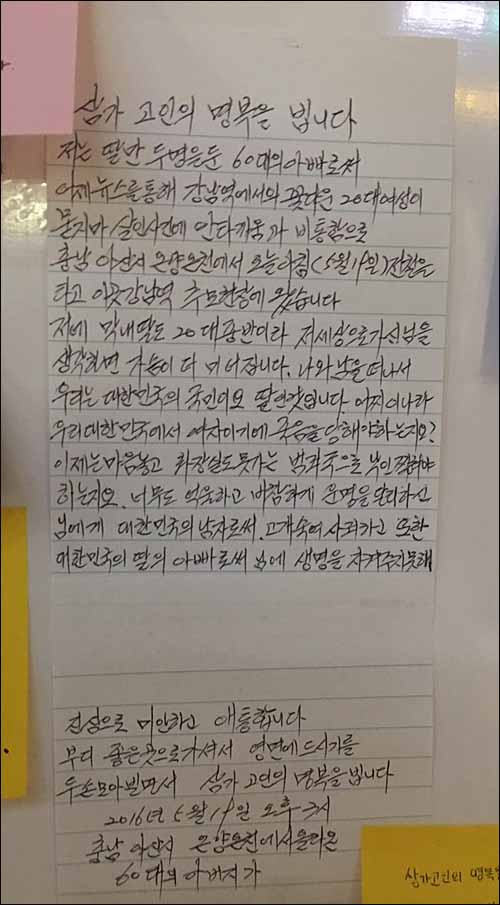 삼가 고인의 명복을 빕니다
저는 딸만 두명을둔 60대의아빠로써
어제뉴스를통해 강남역에서의 꽃다운 20대여성이
묻지마 살인사건에 안타까움과 비통함으로
충남 아산시 온양온천에서 오늘아침(5월19일)전철을
타고 이곳강남역 추모현장에 왔습니다
저에 막내딸도 20대중반이라 저세상으로가신님을
생각하면 가슴이 다 미어집니다. 나와남을떠나서
우리는 대한민국의 국민이요 딸인것입니다. 어찌이나라
우리대한민국에서 여자이기에 죽음을 당해야하는지요?
이제는마음놓고 화장실도못가는 범죄국으로 낙인찍혀야
하는지요. 너무도 억울하고 비참하게 운명을 달리하신
님에게 대한민국의 남자로써. 고개숙여 사죄하고 또한
대한민국의 딸의 아빠로써 님에 생명을 지켜주지못해
진심으로 미안하고 애통합니다
부디 좋은곳으로가셔서 영면에드시기를
두손모아빌면서 삼가 고인의 명복을 빕니다
2016년 5월 19일 오후
충남 아산시 온양온천에서올라온
60대의 아버지가
삼가고인의 명복을